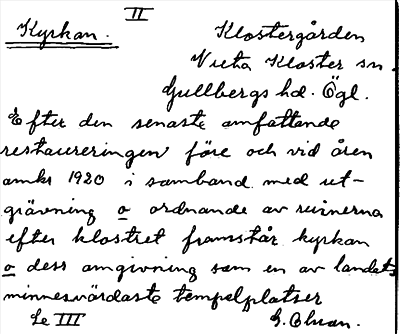 II
Kyrkan.
Klostergården
Vreta Kloster sn.
Gullbergs hd. Ögl.
Efter den senaste omfattande
restaureringen före och vid åren
omkr 1920 i samband med ut-
grävning o ordnande av ruinerna
efter klostret framstår kyrkan
o dess omgivning som en av landets
minnesvärdaste tempelplatser
Se III